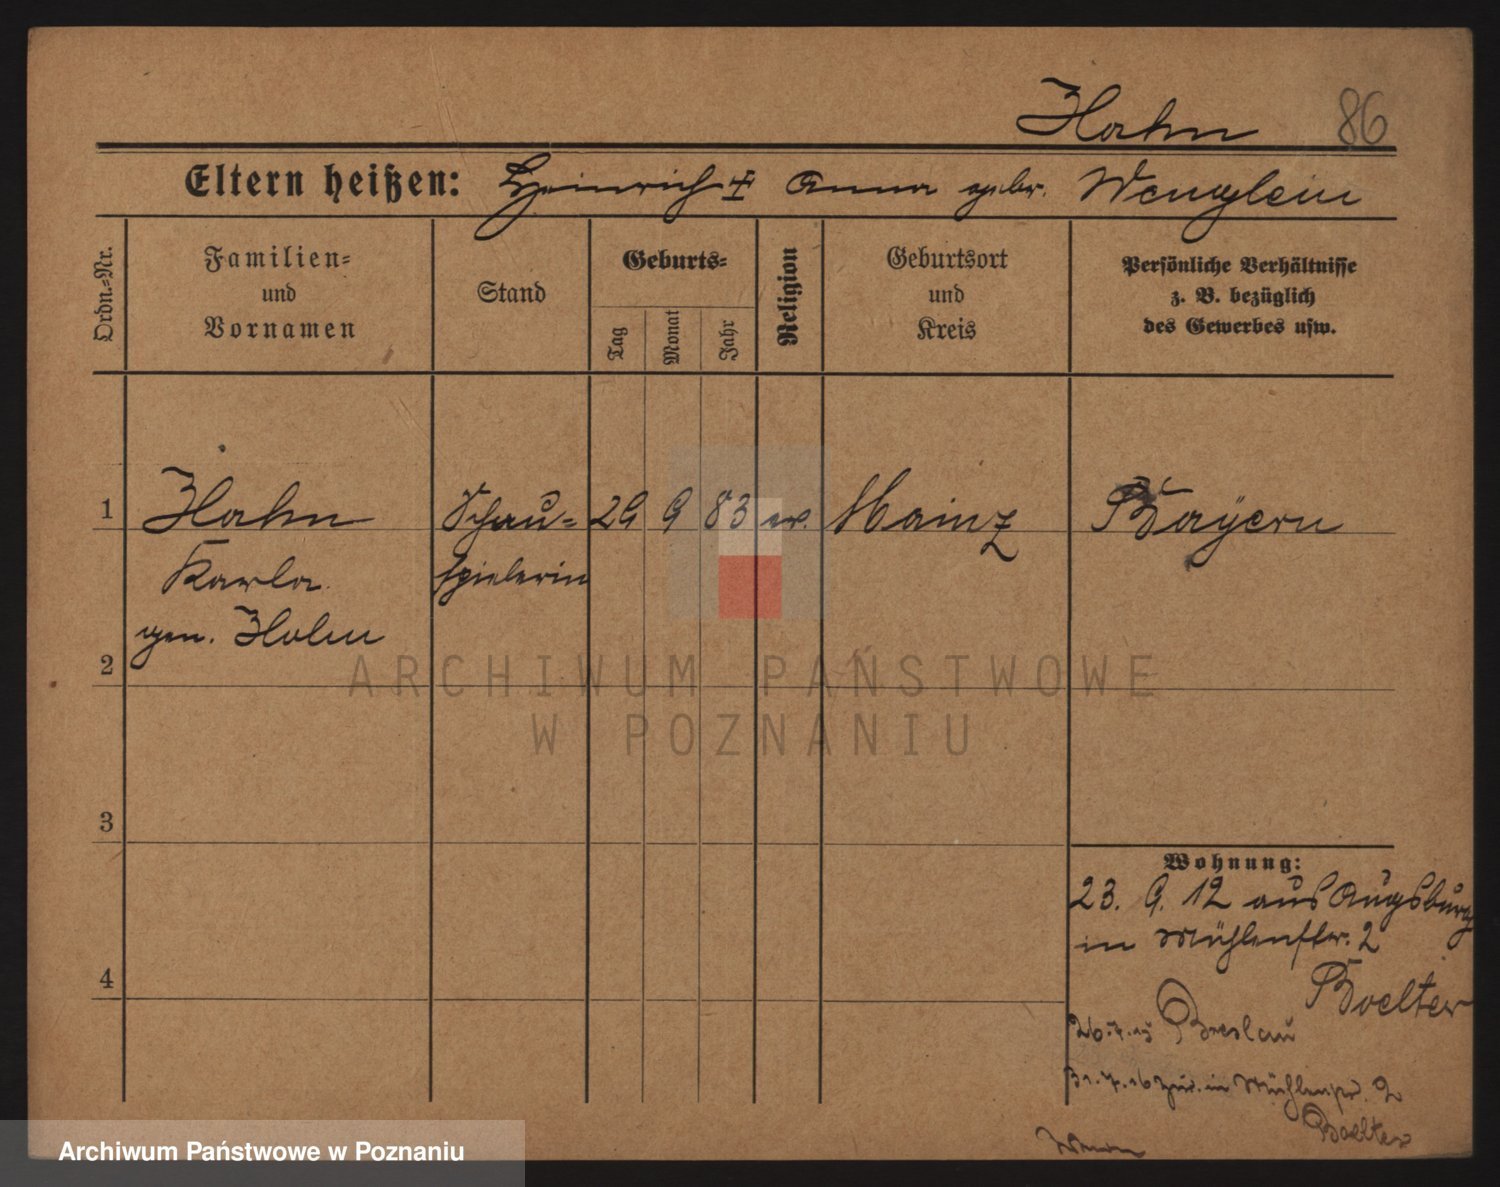 Hahn 86
Eltern heißen: Heinrich † Anna gebr. Wenglein
Ordn.-Nr.
Familien=
und
Vornamen
Stand
Geburts=
Tag
Monat
Jahr
Religion
Geburtsort
und
Kreis
Persönliche Verhältnisse
z. B. bezüglich
des Gewerbes usw.
1 Hahn Schau= 29 9 83 ev. Mainz Bayern
Karla spielerin
gen. Holm
2
ARCHIWUM PAŃSTWOWE
W POZNANIU
3
Wohnung:
23. 9. 12 aus Augsburg
in Mühlenstr. 2
4
Boelter
26.7.15 Breslau
31.7.16 zur. in Mühlenstr. 2
Boelter
Archiwum Państwowe w Poznaniu